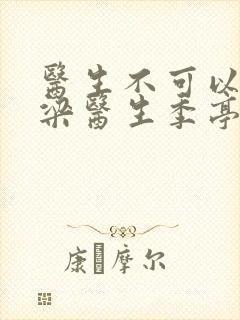 醫生不可以
梁醫生季亭
康 摩尔